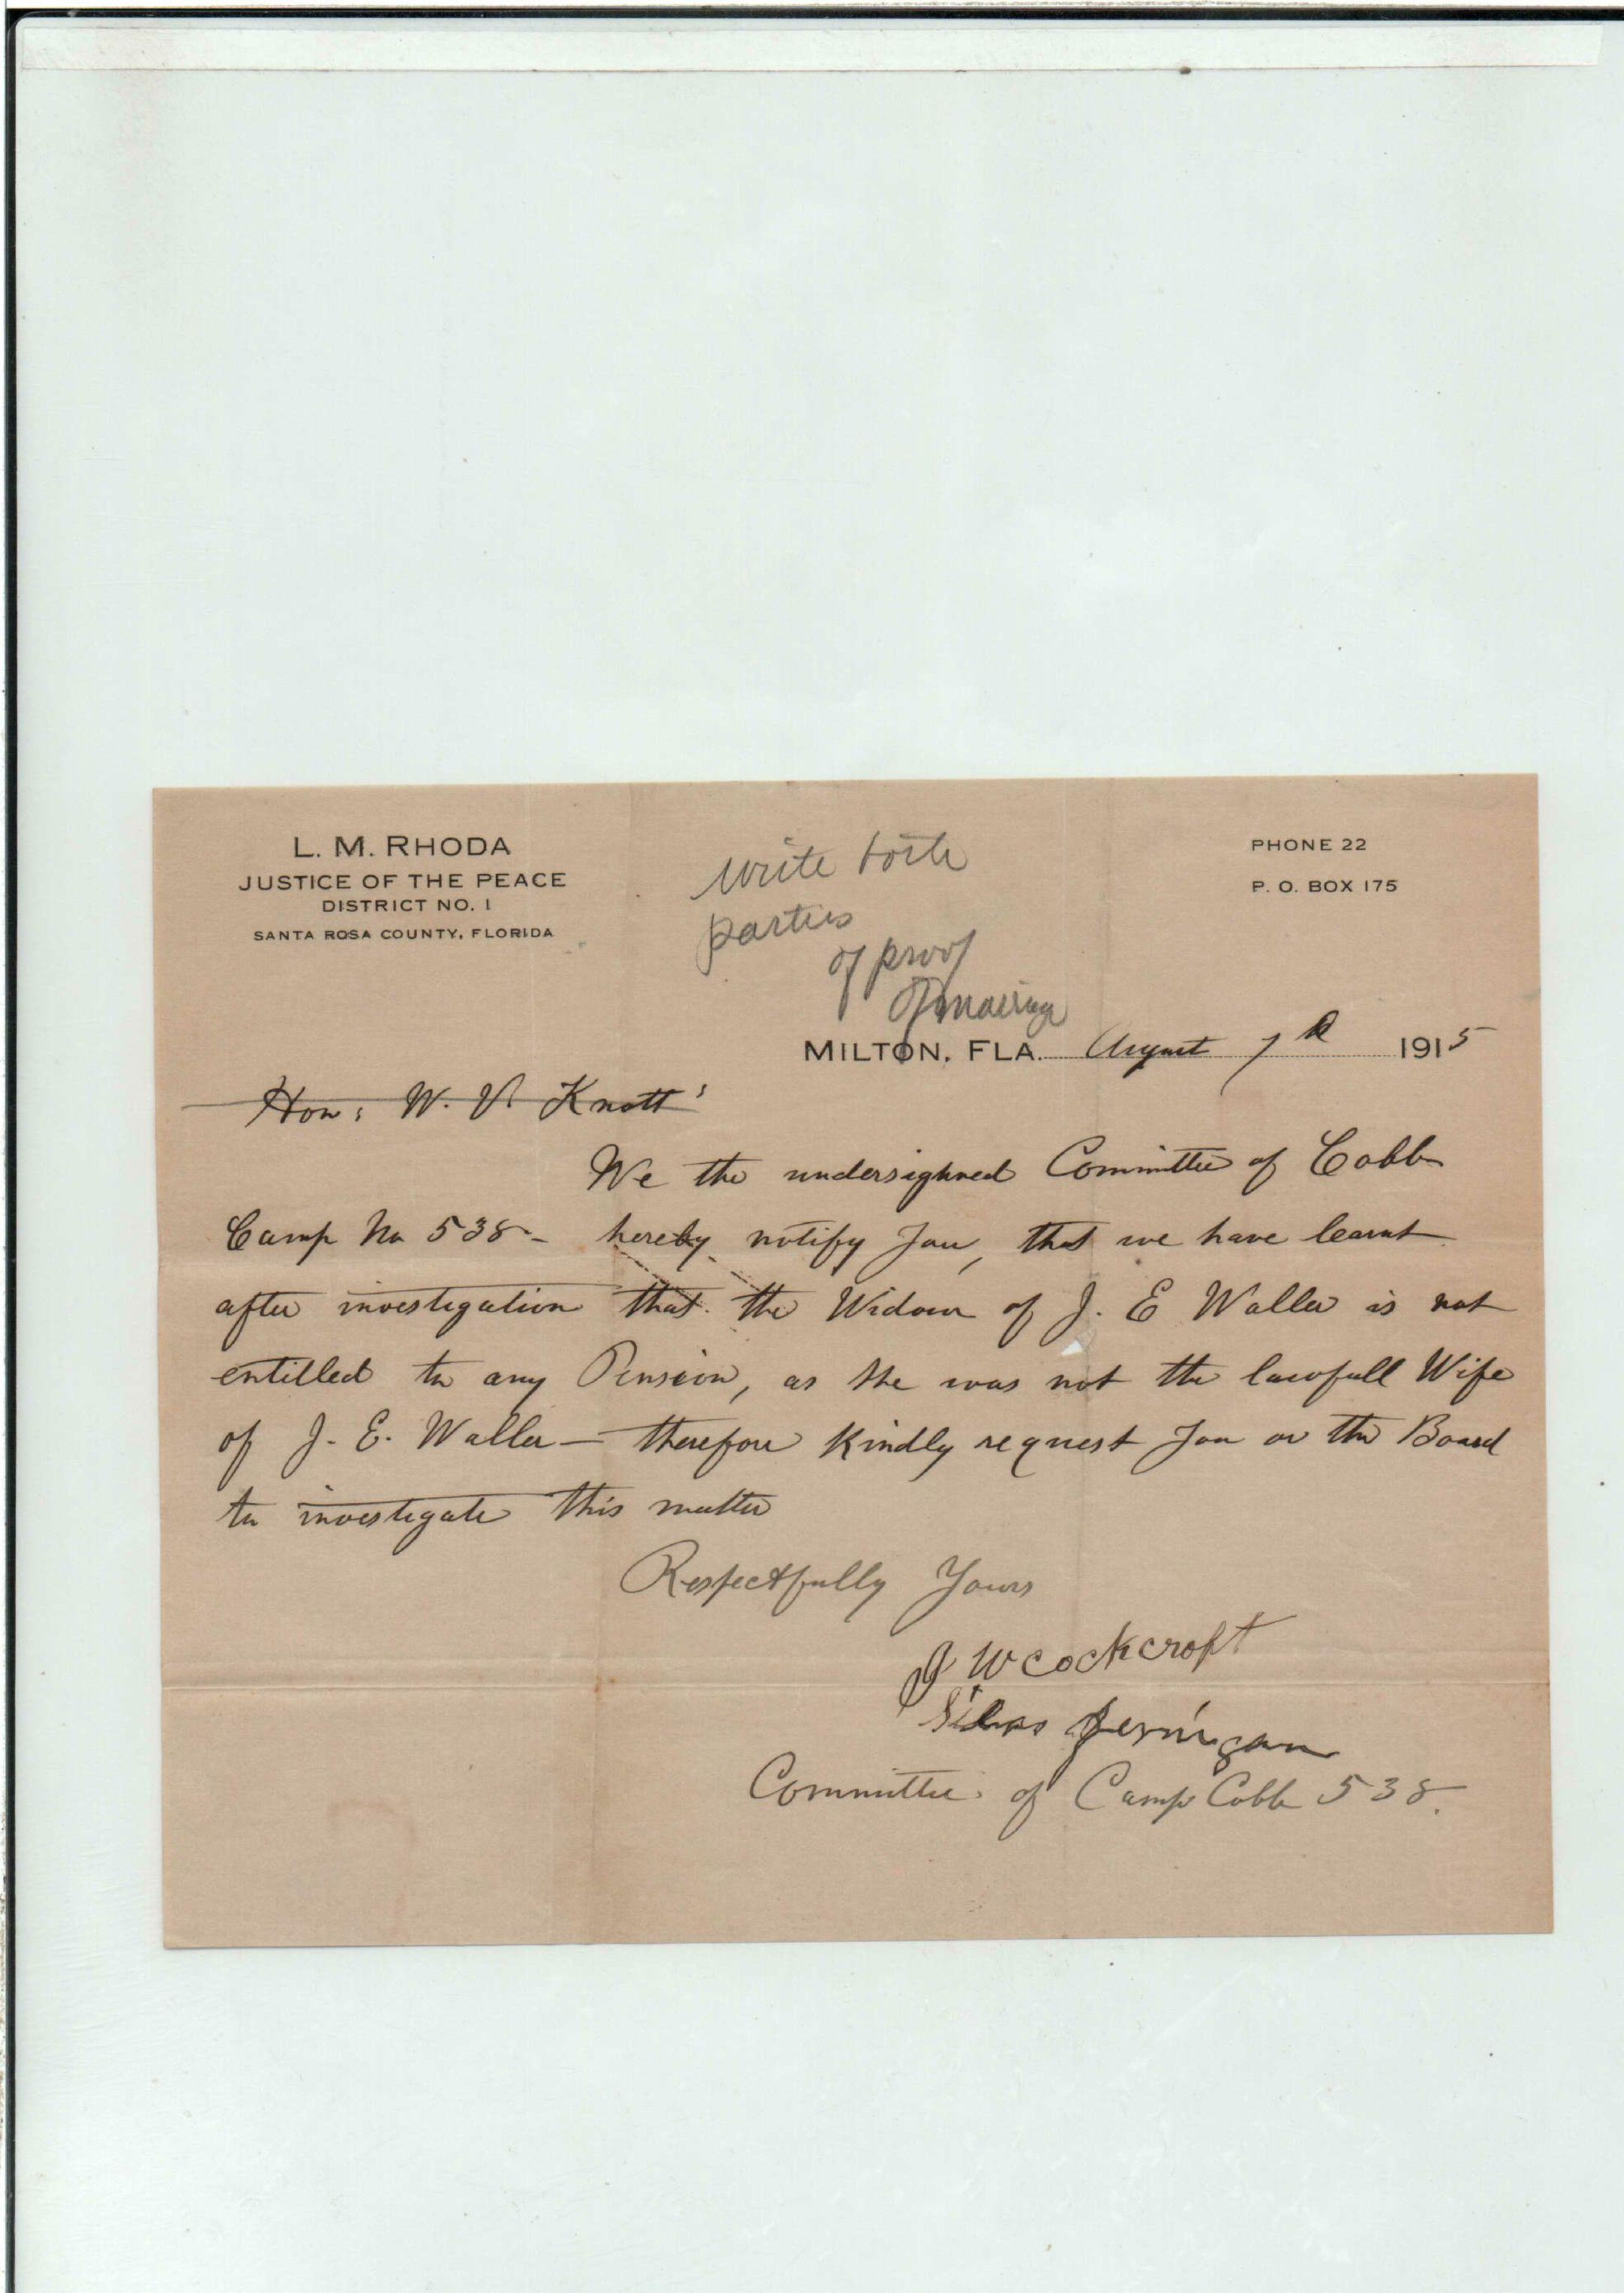 L. M. RHODA
JUSTICE OF THE PEACE
DISTRICT NO. 1
SANTA ROSA COUNTY, FLORIDA
PHONE 22
P. O. BOX 175
write both
parties
of proof
of marriage
MILTON, FLA. August 7th 1915
Hon: W. V. Knott
We the undersighned Committee of Cobb
Camp No 538 - hereby notify You, that we have learnt
after investigation that the Widow of J. E Waller is not
entitled to any Pension, as she was not the lawfull Wife
of J. E. Waller - therefore Kindly request You or the Board
to investigate this matter
Respectfully Yours
J W Cockcroft
Silas Jernigan
Committee of Camp Cobb 538.